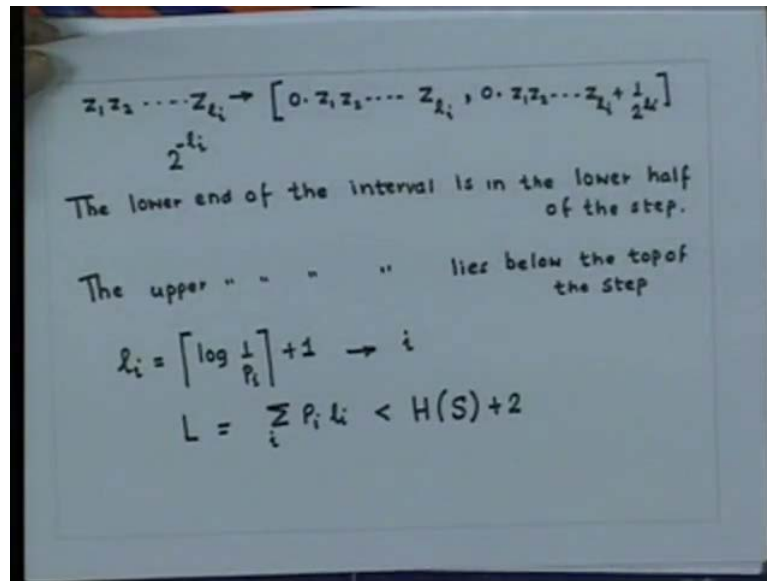 z₁z₂ ‥‥ z_{lᵢ} → [0. z₁z₂ ---- z_{lᵢ} , 0. z₁z₂---z_{lᵢ} + 1/2^{lᵢ}]
2^{-lᵢ}
The lower end of the interval is in the lower half
of the step.
The upper " " " " lies below the top of
the step
lᵢ = ⌈log 1/Pᵢ⌉ + 1 → i
L = Σᵢ Pᵢ lᵢ < H(S) + 2